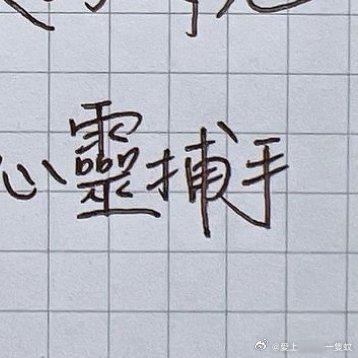 心靈捕手
@愛上 一隻蚊